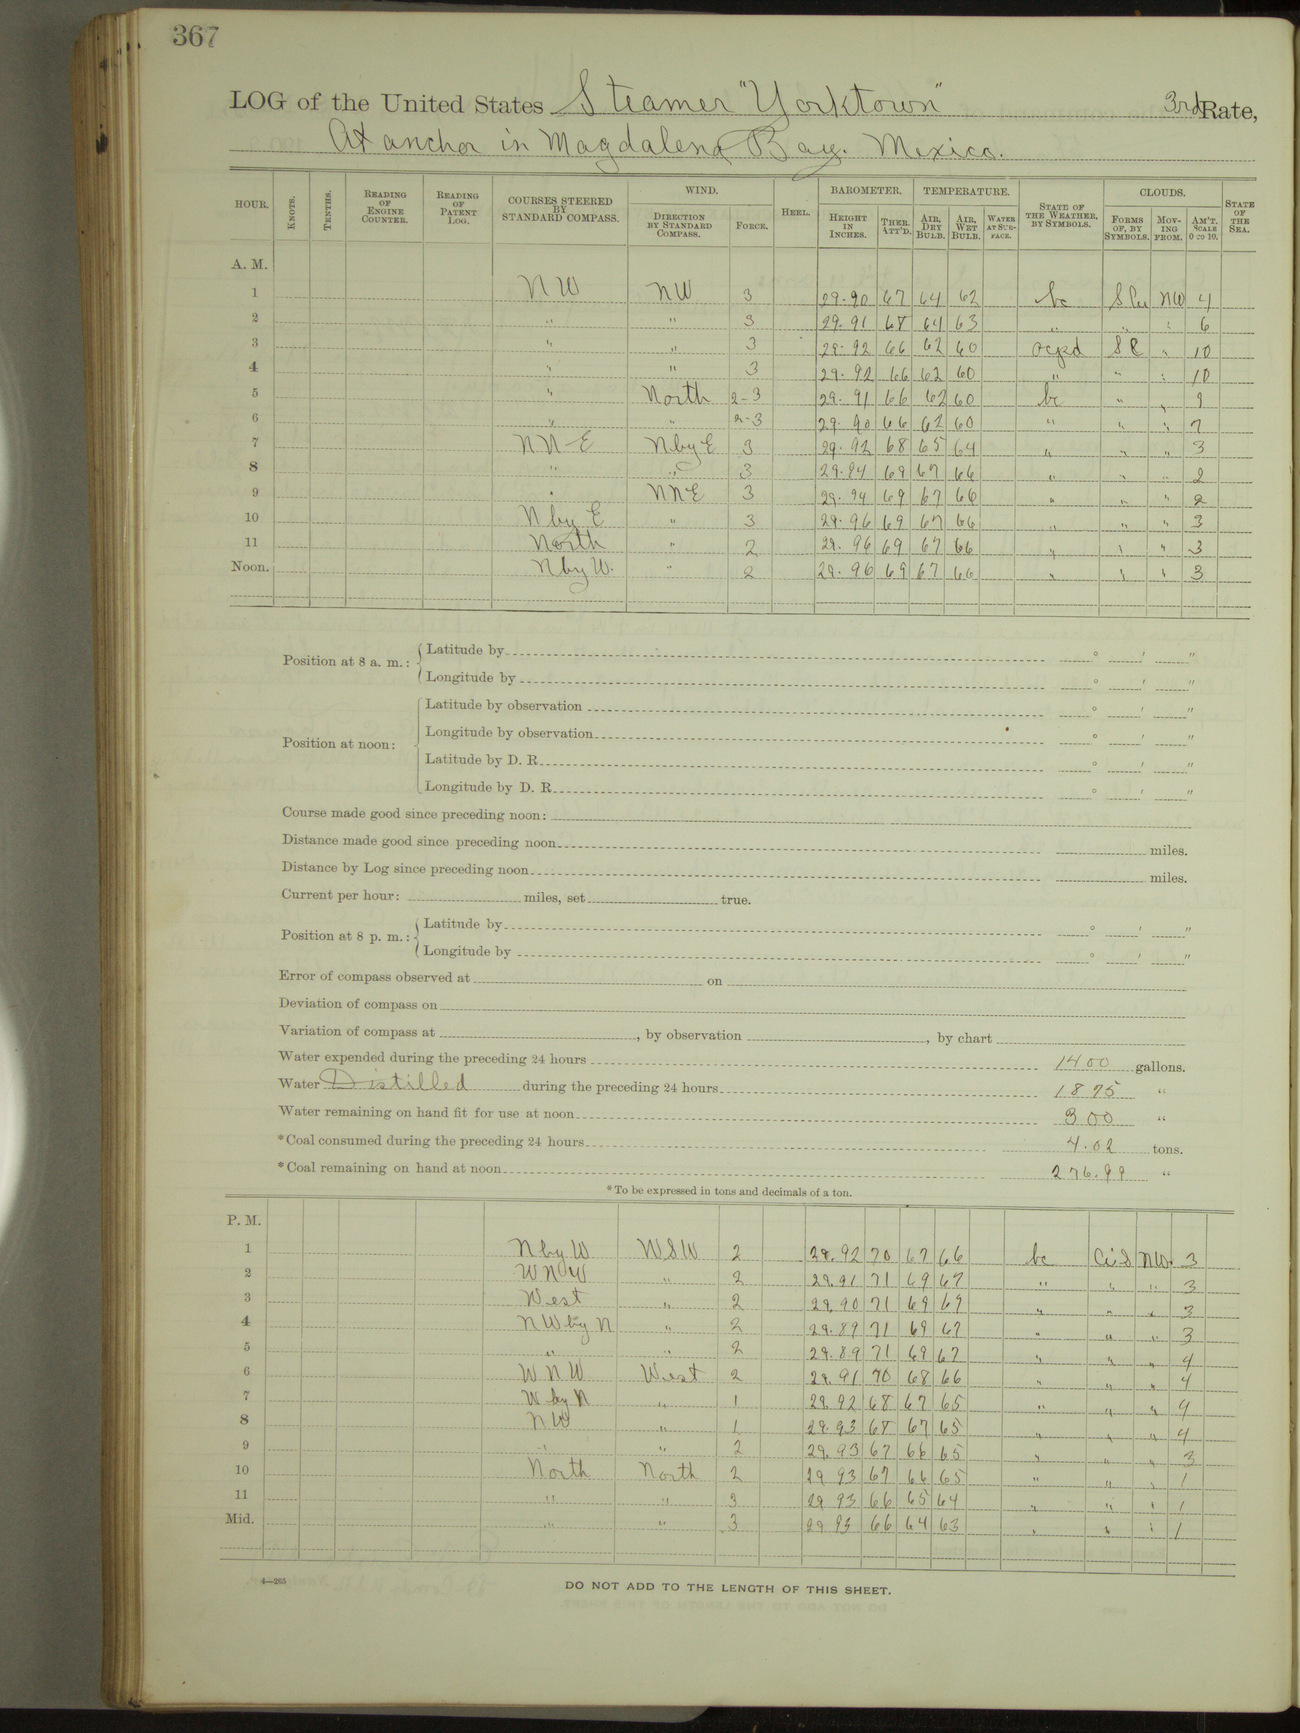 367
LOG of the United States Steamer "Yorktown" 3rd Rate,
At anchor in Magdalena Bay. Mexico.
HOUR. KNOTS. TENTHS. READING OF ENGINE COUNTER. READING OF PATENT LOG. COURSES STEERED BY STANDARD COMPASS. WIND. DIRECTION BY STANDARD COMPASS. FORCE. HEEL. BAROMETER. HEIGHT IN INCHES. THER. ATT'D. TEMPERATURE. AIR, DRY BULB. AIR, WET BULB. WATER AT SURFACE. STATE OF THE WEATHER, BY SYMBOLS. CLOUDS. FORMS OF, BY SYMBOLS. MOVING FROM. AM'T. SCALE 0 TO 10. STATE OF THE SEA.
A. M.
1 NW NW 3 29.90 67 64 62 bc S Cu NW 4
2 " " 3 29.91 68 64 63 " " " 6
3 " " 3 29.92 66 62 60 ocpd S C " 10
4 " " 3 29.92 66 62 60 " " " 10
5 " North 2-3 29.91 66 62 60 bc " " 9
6 " " 2-3 29.90 66 62 60 " " " 7
7 NNE NbyE 3 29.92 68 65 64 " " " 3
8 " " 3 29.94 69 67 66 " " " 2
9 " NNE 3 29.94 69 67 66 " " " 2
10 NbyE " 3 29.96 69 67 66 " " " 3
11 North " 2 29.96 69 67 66 " " " 3
Noon. NbyW. " 2 29.96 69 67 66 " " " 3
Position at 8 a. m.: Latitude by ° ' "
Longitude by ° ' "
Position at noon: Latitude by observation ° ' "
Longitude by observation ° ' "
Latitude by D. R. ° ' "
Longitude by D. R. ° ' "
Course made good since preceding noon:
Distance made good since preceding noon miles.
Distance by Log since preceding noon miles.
Current per hour: miles, set true.
Position at 8 p. m.: Latitude by ° ' "
Longitude by ° ' "
Error of compass observed at on
Deviation of compass on
Variation of compass at , by observation , by chart
Water expended during the preceding 24 hours 1400 gallons.
Water Distilled during the preceding 24 hours 1875 "
Water remaining on hand fit for use at noon 300 "
*Coal consumed during the preceding 24 hours 4.02 tons.
*Coal remaining on hand at noon 276.99 "
*To be expressed in tons and decimals of a ton.
P. M.
1 NbyW WSW 2 29.92 70 67 66 bc Ci S NW. 3
2 WNW " 2 29.91 71 69 67 " " " 3
3 West " 2 29.90 71 69 69 " " " 3
4 NWbyN " 2 29.89 71 69 67 " " " 3
5 " " 2 29.89 71 69 67 " " " 4
6 WNW West 2 29.91 70 68 66 " " " 4
7 WbyN " 1 29.92 68 67 65 " " " 4
8 NW " 1 29.93 68 67 65 " " " 4
9 " " 2 29.93 67 66 65 " " " 3
10 North North 2 29 93 67 66 65 " " " 1
11 " " 3 29 93 66 65 64 " " " 1
Mid. " " 3 29 93 66 64 63 " " " 1
4—265
DO NOT ADD TO THE LENGTH OF THIS SHEET.